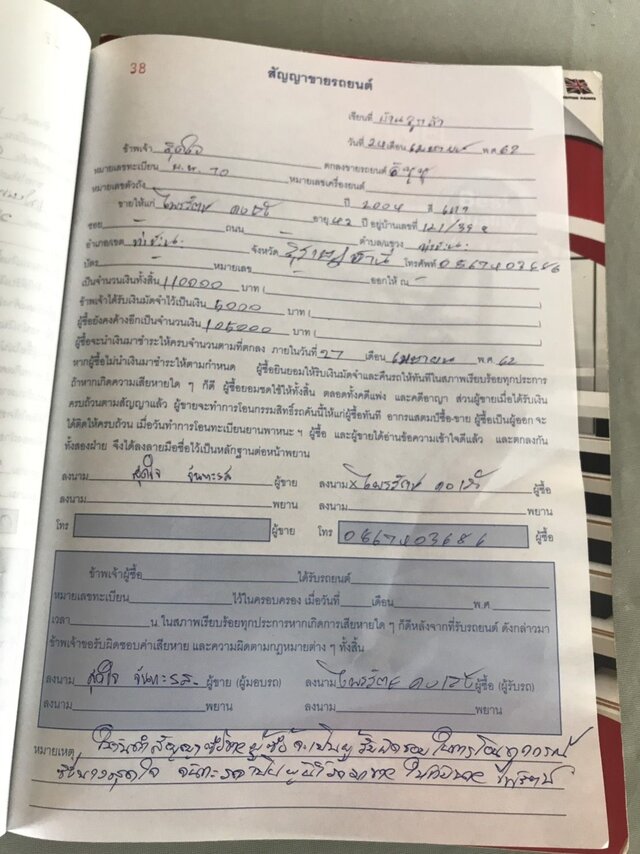 38
สัญญาขายรถยนต์
เขียนที่ บ้านลูกค้า
วันที่ 24 เดือน เมษายน พ.ศ. 62
ข้าพเจ้า สุดใจ ตกลงขายรถยนต์ อีซูซุ
หมายเลขทะเบียน หมายเลขเครื่องยนต์
หมายเลขตัวถัง ปี 2004 สี เทา
ขายให้แก่ ไพรรัตน์ อายุ 42 ปี อยู่บ้านเลขที่ 121/39
ซอย - ถนน - ตำบล/แขวง
อำเภอ/เขต จังหวัด สุราษฎร์ธานี โทรศัพท์ 0867403686
บัตร - หมายเลข - ออกให้ ณ -
เป็นจำนวนเงินทั้งสิ้น 110000 บาท (
ข้าพเจ้าได้รับเงินมัดจำไว้เป็นเงิน 5000 บาท (
ผู้ซื้อยังคงค้างอีกเป็นจำนวนเงิน 105000 บาท (
ผู้ซื้อจะนำเงินมาชำระให้ครบจำนวนตามที่ตกลง ภายในวันที่ 27 เดือน เมษายน พ.ศ. 62
หากผู้ซื้อไม่นำเงินมาชำระตามกำหนด ผู้ซื้อยินยอมให้ริบเงินมัดจำและคืนรถให้ทันทีในสภาพเรียบร้อยทุกประการ
ถ้าหากเกิดความเสียหายใด ๆ ก็ดี ผู้ซื้อยอมชดใช้ให้ทั้งสิ้น ตลอดทั้งคดีแพ่ง และคดีอาญา ส่วนผู้ขายเมื่อได้รับเงิน
ครบถ้วนตามสัญญาแล้ว ผู้ขายจะทำการโอนกรรมสิทธิ์รถคันนี้ให้แก่ผู้ซื้อทันที อากรแสตมป์ซื้อ-ขาย ผู้ซื้อเป็นผู้ออก จะ
ได้ติดให้ครบถ้วน เมื่อวันทำการโอนทะเบียนยานพาหนะ ฯ ผู้ซื้อ และผู้ขายได้อ่านข้อความเข้าใจดีแล้ว และตกลงกัน
ทั้งสองฝ่าย จึงได้ลงลายมือชื่อไว้เป็นหลักฐานต่อหน้าพยาน
ลงนาม สุดใจ จันทะรส ผู้ขาย ลงนาม x ไพรรัตน์ ผู้ซื้อ
ลงนาม พยาน ลงนาม พยาน
โทร ผู้ขาย โทร 0867403686 ผู้ซื้อ
ข้าพเจ้าผู้ซื้อ ได้รับรถยนต์
หมายเลขทะเบียน ไว้ในครอบครอง เมื่อวันที่ เดือน พ.ศ.
เวลา น ในสภาพเรียบร้อยทุกประการหากเกิดการเสียหายใด ๆ ก็ดีหลังจากที่รับรถยนต์ ดังกล่าวมา
ข้าพเจ้าขอรับผิดชอบค่าเสียหาย และความผิดตามกฎหมายต่าง ๆ ทั้งสิ้น
ลงนาม สุดใจ จันทะรส ผู้ขาย (ผู้มอบรถ) ลงนาม ไพรรัตน์ ผู้ซื้อ (ผู้รับรถ)
ลงนาม พยาน ลงนาม พยาน
หมายเหตุ ในวันทำสัญญาซื้อขาย ผู้ซื้อจะเป็นผู้รับผิดชอบในการโอน
สุดใจ จันทะรส